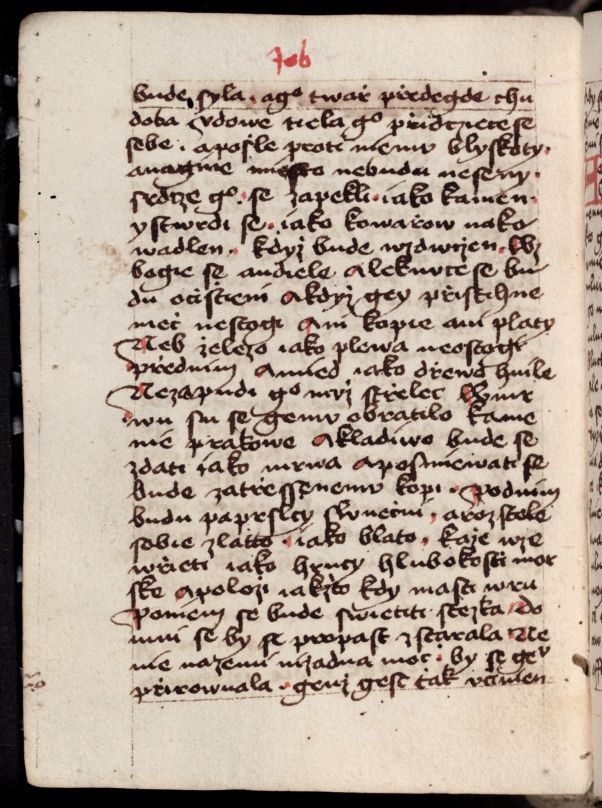 Job
bude syla · a go twař předegde chu
doba vdowe tiela go přidrziete se
sebe · a pošle proti niemu blyskoty ·
a na gine miesto nebudu neseny ·
srdcze go · se zapekli · iako kamen ·
y stwrdi se · iako kowařow nako
wadlen · kdyż bude wzdwiżen ·
bogie se andiele A lekmuce se bu
du ocisstieni A kdyż gey přistihne
meč nestogi Ani kopie ani platy
Neb żelezo iako plewa neostogi
přednim A mied iako dřewo hnile
Nezapudi go muż střelec
wu su se gemu obratilo kame
nie prakowe A kladiwo bude se
zdati iako mrwa A posmiewati se
bude zatřessenemu kopi · Podnim
budu paprslcy slunecni · a rozstele
sobie zlatto · iako blato · każe wze
wřieti iako hrncy hlubokosti moř
ske A położi iakżto kdy masti wru
Poniem se bude swietiti stezka · do
mni se by se propast zstarala Ne
nie nazemi niżadna moc · by se gev
přirownala · genż gest tak vcinien